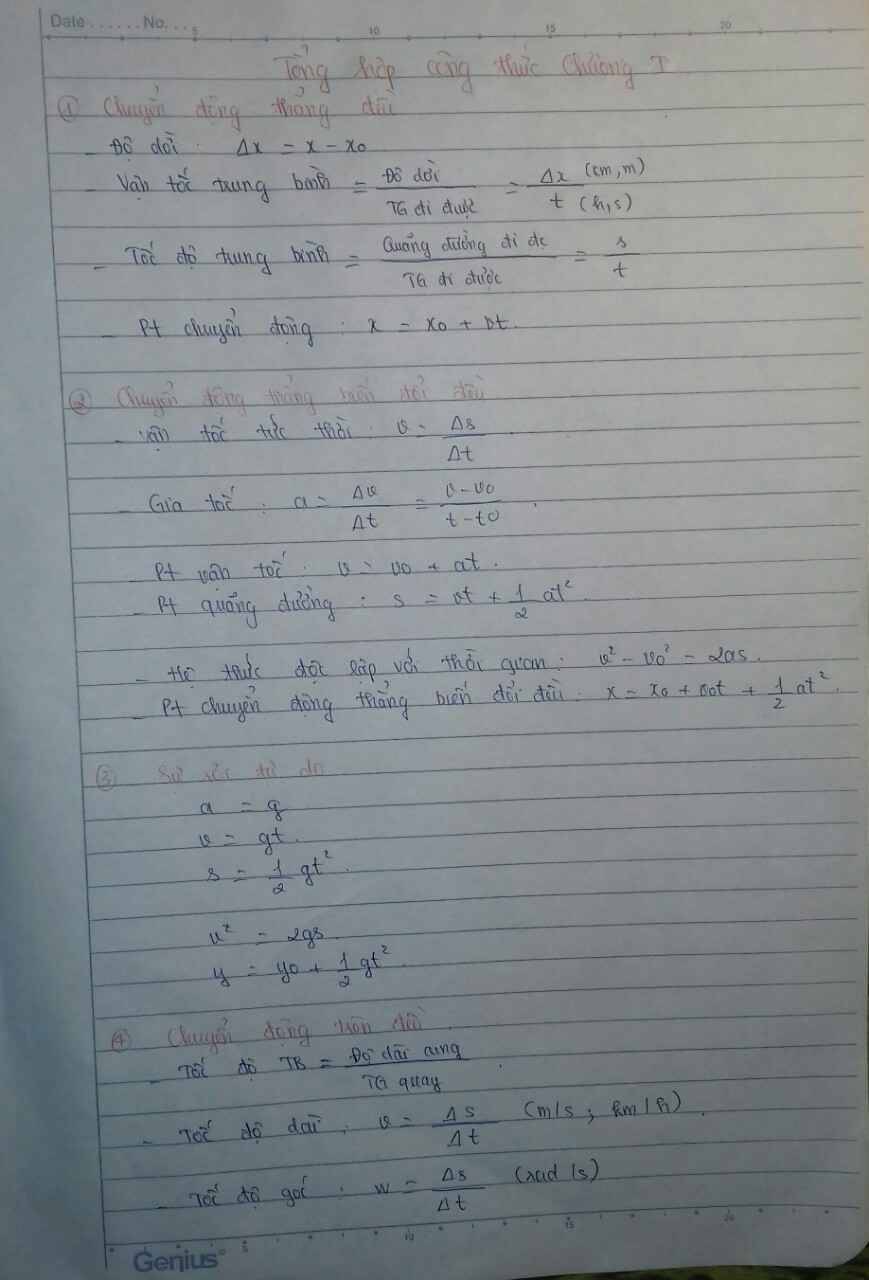 Date......No....
5 10 15 20
Tổng hợp công thức Chương I
① Chuyển động thẳng đều
- Độ dời: Δx = x - x0
- Vận tốc trung bình = Độ dời / TG đi được = Δx (cm, m) / t (h, s)
- Tốc độ trung bình = Quãng đường đi đc / TG đi được = s / t
- Pt chuyển động: x = x0 + vt.
② Chuyển động thẳng biến đổi đều
- vận tốc tức thời: v = Δs / Δt
- Gia tốc: a = Δv / Δt = v-v0 / t-t0.
- Pt vận tốc: v = v0 + at.
- Pt quãng đường: s = vt + 1/2 at²
- Hệ thức độc lập với thời gian: v² - v0² = 2as.
- Pt chuyển động thẳng biến đổi đều: x = x0 + v0t + 1/2 at².
③ Sự rơi tự do
a = g
v = gt.
s = 1/2 gt².
v² = 2gs
y = y0 + 1/2 gt²
④ Chuyển động tròn đều.
- Tốc độ TB = Độ dài cung / TG quay.
- Tốc độ dài: v = Δs / Δt (m/s; km/h).
- Tốc độ góc: w = Δs / Δt (rad/s)
Genius 5 10 15 20